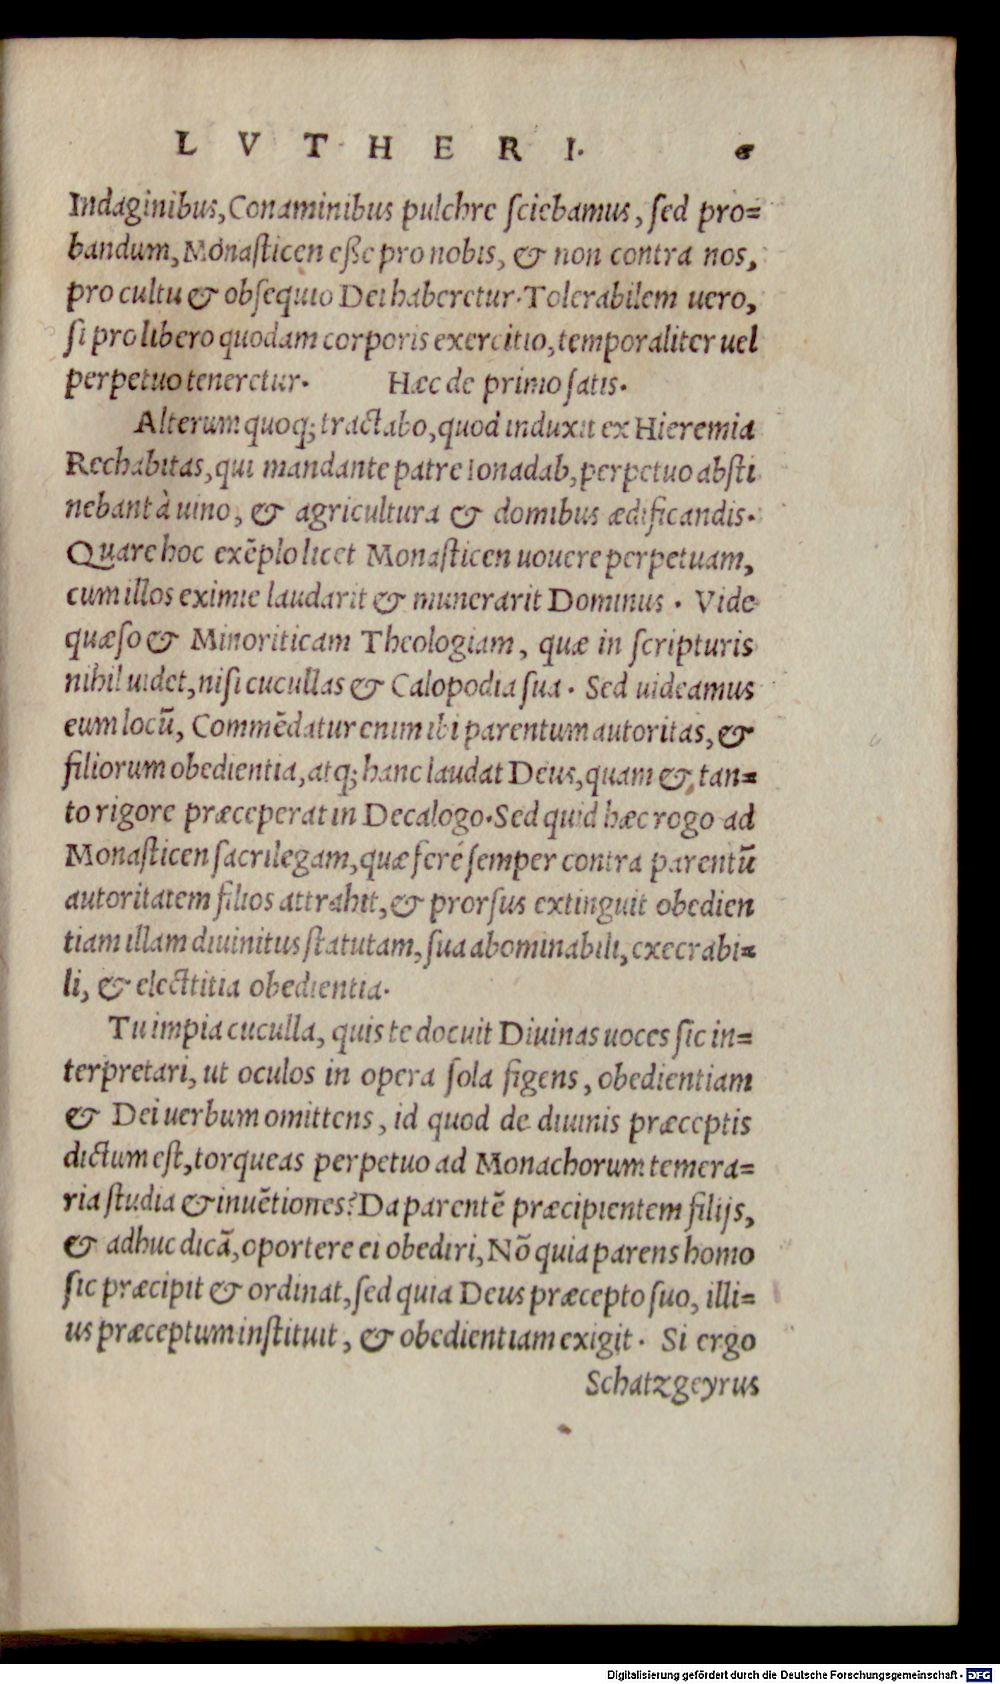 LVTHERI.
Indaginibus, Conaminibus pulchre ſciebamus, ſed pro=
bandum, Monaſticen eſſe pro nobis, & non contra nos,
pro cultu & obſequio Dei haberetur. Tolerabilem uero,
ſi pro libero quodam corporis exercitio, temporaliter uel
perpetuo teneretur. Hæc de primo ſatis.
Alterum quoq; tractabo, quod induxit ex Hieremia
Rechabitas, qui mandante patre Ionadab, perpetuo abſti
nebant à uino, & agricultura & domibus ædificandis.
Quare hoc exēplo licet Monaſticen uouere perpetuam,
cum illos eximie laudarit & munerarit Dominus. Vide
quæſo & Minoriticam Theologiam, quæ in ſcripturis
nihil uidet, niſi cucullas & Calopodia ſua. Sed uideamus
eum locū, Commēdatur enim ibi parentum autoritas, &
filiorum obedientia, atq; hanc laudat Deus, quam & tan=
to rigore præceperat in Decalogo. Sed quid hæc rogo ad
Monaſticen ſacrilegam, quæ ferè ſemper contra parentū
autoritatem filios attrahit, & prorſus extinguit obedien
tiam illam diuinitus ſtatutam, ſua abominabili, execrabi=
li, & electitia obedientia.
Tu impia cuculla, quis te docuit Diuinas uoces ſic in=
terpretari, ut oculos in opera ſola figens, obedientiam
& Dei uerbum omittens, id quod de diuinis præceptis
dictum eſt, torqueas perpetuo ad Monachorum temera=
ria ſtudia & inuētiones? Da parentē præcipientem filijs,
& adhuc dicā, oportere ei obediri, Nō quia parens homo
ſic præcipit & ordinat, ſed quia Deus præcepto ſuo, illi=
us præceptum inſtituit, & obedientiam exigit. Si ergo
Schatzgeyrus
Digitalisierung gefördert durch die Deutsche Forschungsgemeinschaft - DFG